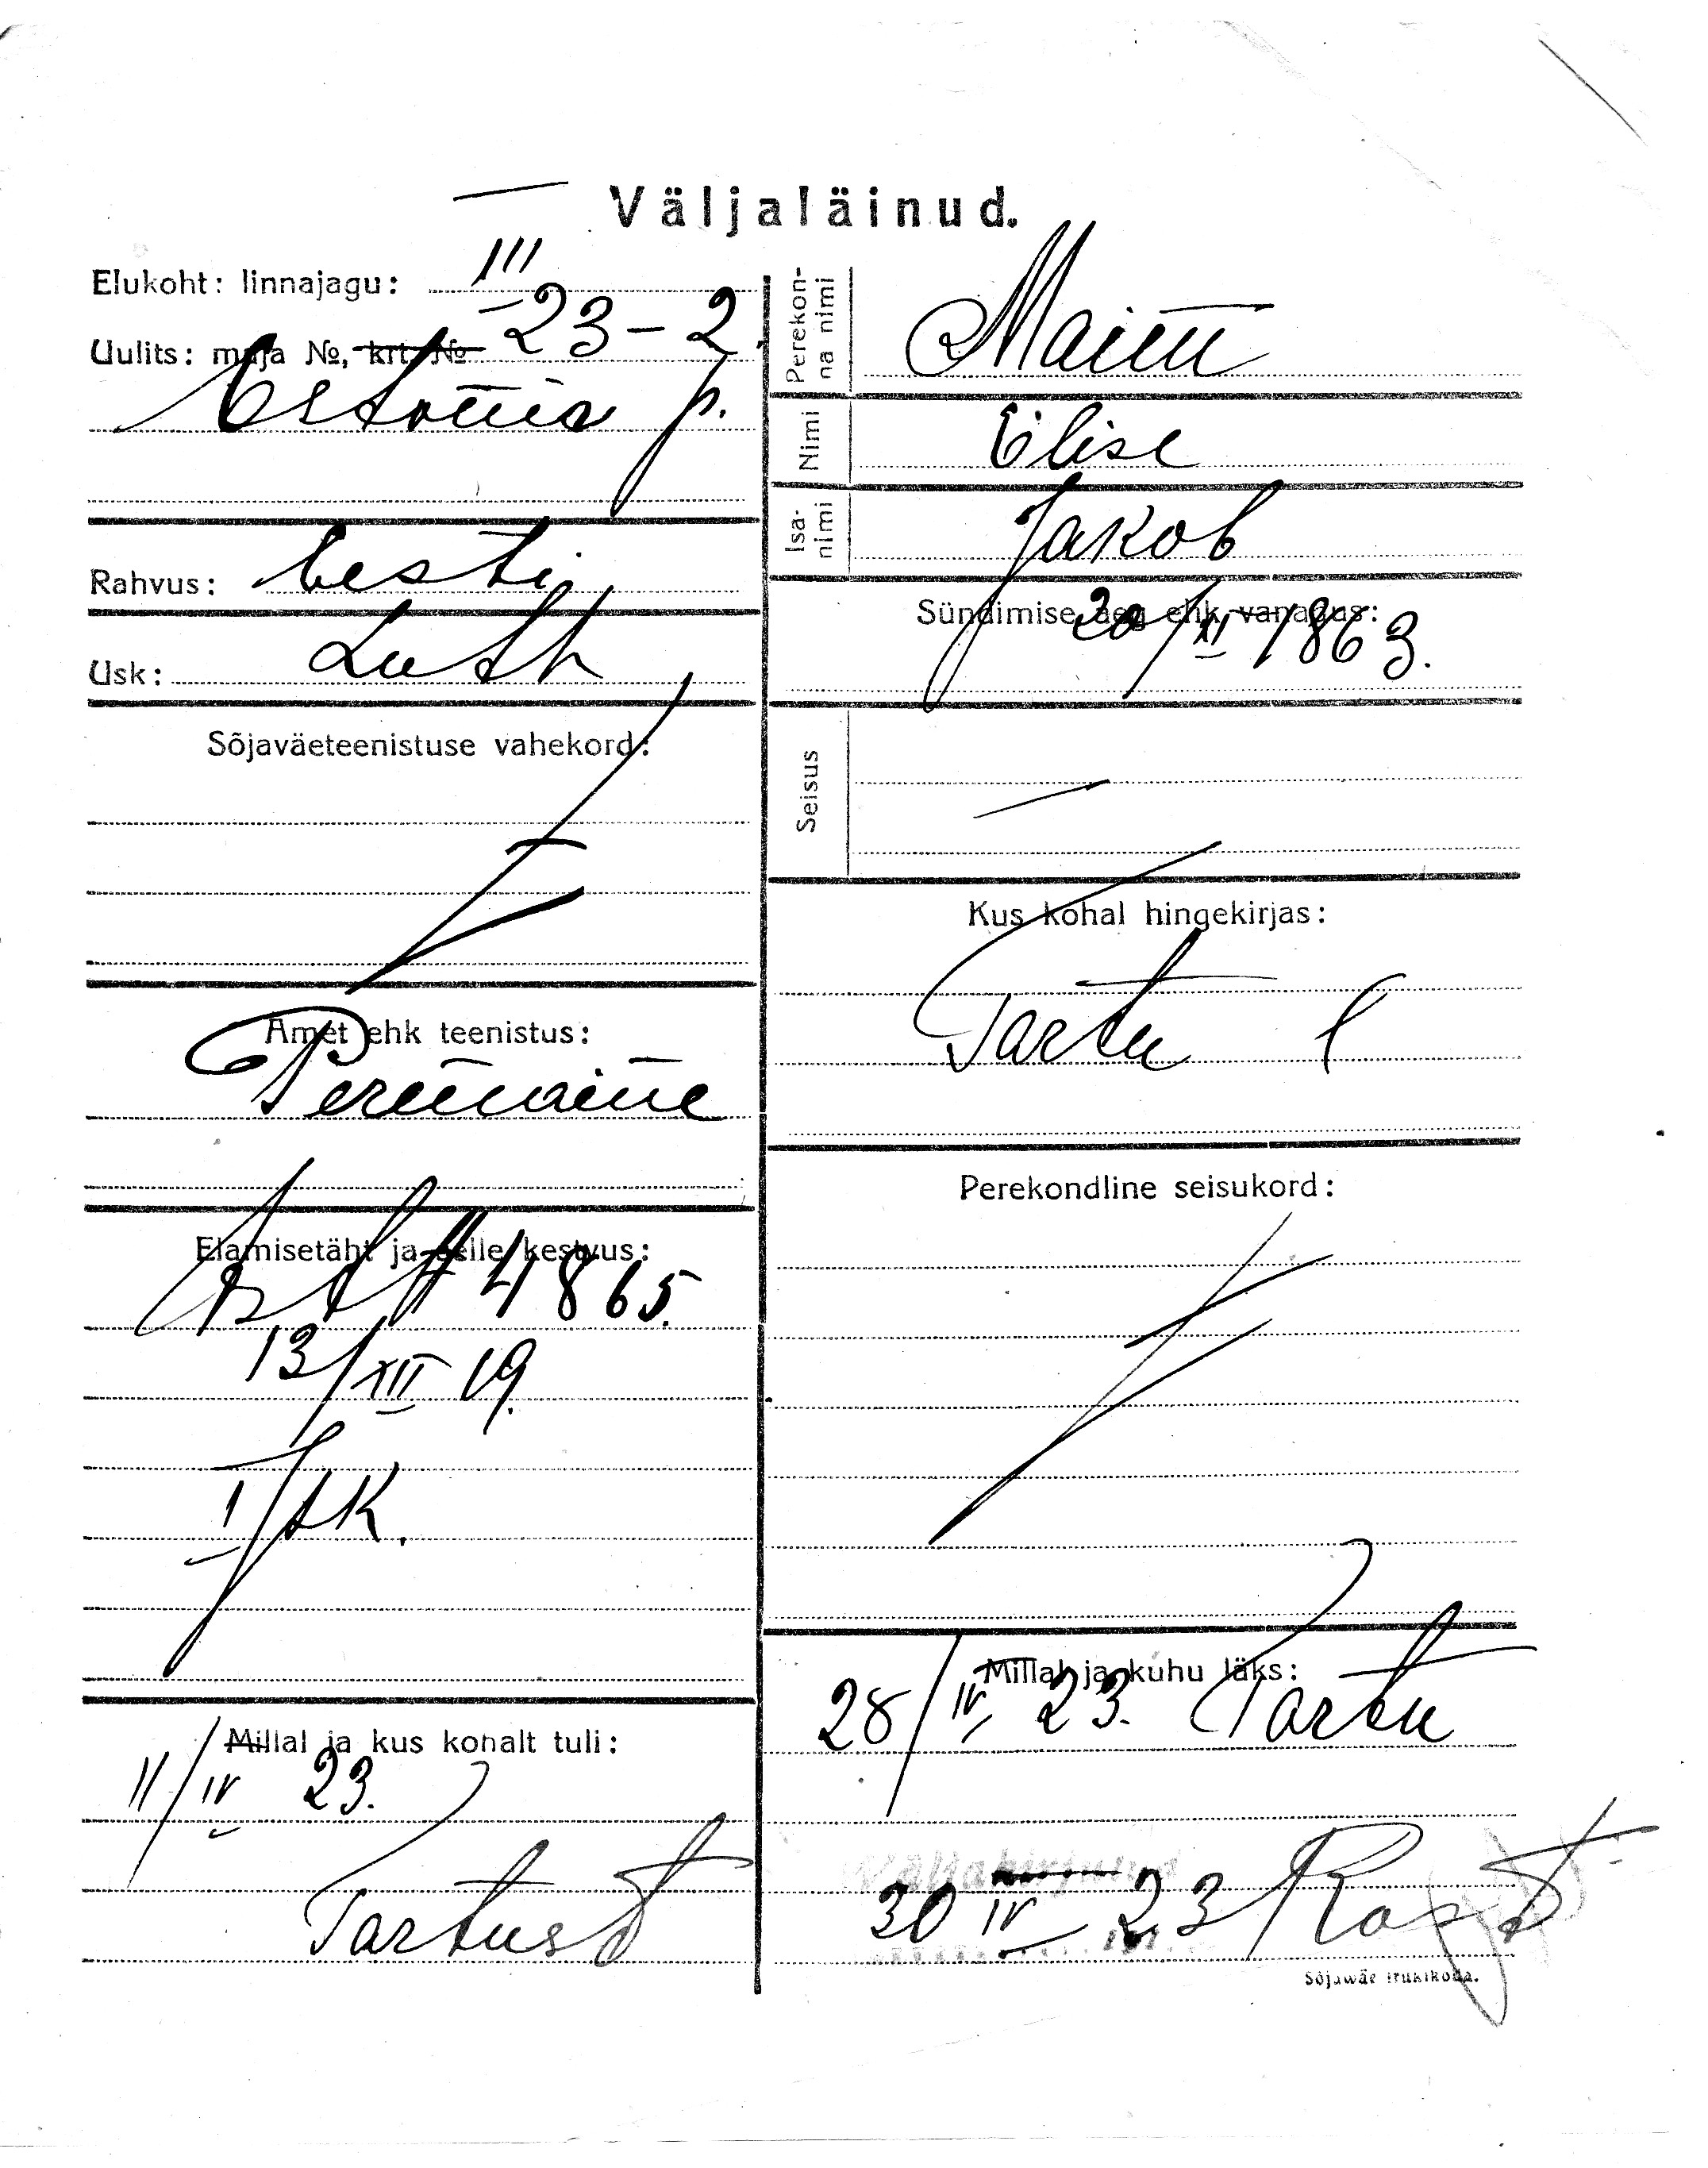 Väljaläinud.
Elukoht: linnajagu: III
Uulits: maja №, krt. № 23-2
Estonia p.
Rahvus: Eesti
Usk: Luth
Sõjaväeteenistuse vahekord:
Amet ehk teenistus:
Perenaine
Elamisetäht ja selle kestvus:
4865.
13/XII 19.
I/jsk.
Millal ja kus kohalt tuli:
11/IV 23.
Tartust
Perekonna nimi
Nimi Elise
Isanimi Jakob
Sündimise aeg ehk vanadus:
20/XI 1863.
Seisus —
Kus kohal hingekirjas:
Tartu l
Perekondline seisukord:
Millal ja kuhu läks:
28/IV 23. Tartu
Väljakirjutud
30 IV 23
Sõjawäe trükikoda.